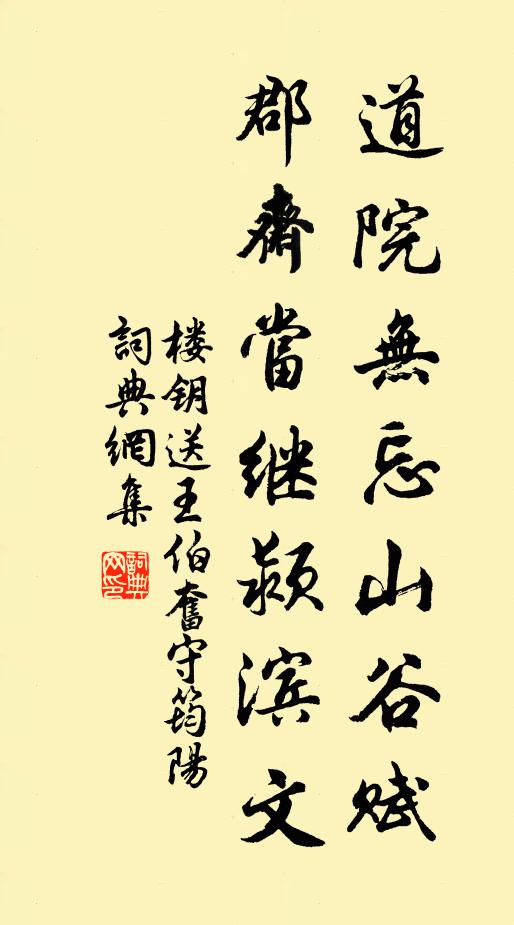 道院無忘山谷赋
郡齋當继颍滨文
楼钥送王伯奮守筠陽
詞典網集
詞典网印